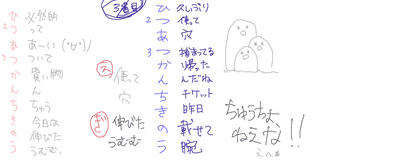 ひ 必然的
2 つ って
あ あ〜い (°∀°)/
3 つ ついて
か 買い物
ん ん
ち ちゅう
き 今日は
の 伸びた
う うむむ、
ス 使って
穴
ぎ 伸びた
うむむ
3番目
ひ 久しぶり
2 つ 使って
あ 穴
3 つ 捕まってる
か 帰った
ん んだね
ち チケット
き 昨日
の 載せて
う 腕
ちゅうちょ、
ねえな!!